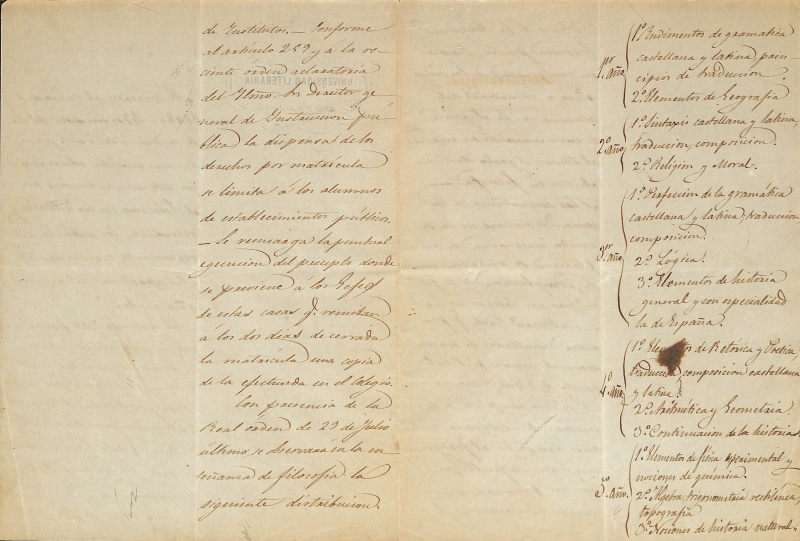 de Institutos. — Conforme
al artículo 259 y a la re-
ciente orden aclaratoria
del Ylmo. Sr. Director ge-
neral de Instruccion pú-
blica la dispensa de los
derechos por matrícula
se limita á los alumnos
de establecimientos públicos.
— Se reencarga la puntual
egecucion del precepto donde
se previene á los Gefes
de estas casas q. remitan
á los dos dias de cerrada
la matrícula una copia
de la efectuada en el Colegio.
Con presencia de la
Real orden de 29 de Julio
último, se observará en la en-
señanza de filosofía la
siguiente distribucion.
1er año.
1º Rudimentos de gramática
castellana y latina, prin-
cipios de traduccion.
2º Elementos de Geografía
2º año
1º Sintaxis castellana y latina,
traduccion, composicion.
2º Religion y Moral.
3er año.
1º Perfeccion de la gramática
castellana y latina, traduccion,
composicion.
2º Lógica.
3º Elementos de historia
general y con especialidad
la de España.
4º año
1º Elementos de Retórica y Poética,
traduccion, composicion castellana
y latina.
2º Aritmética y Geometría.
3º Continuacion de la historia.
5º año.
1º Elementos de física esperimental y
nociones de química.
2º Algebra, trigonometría rectilínea,
topografía
3º Nociones de historia natural.
UNIVERSIDAD LITERARIA